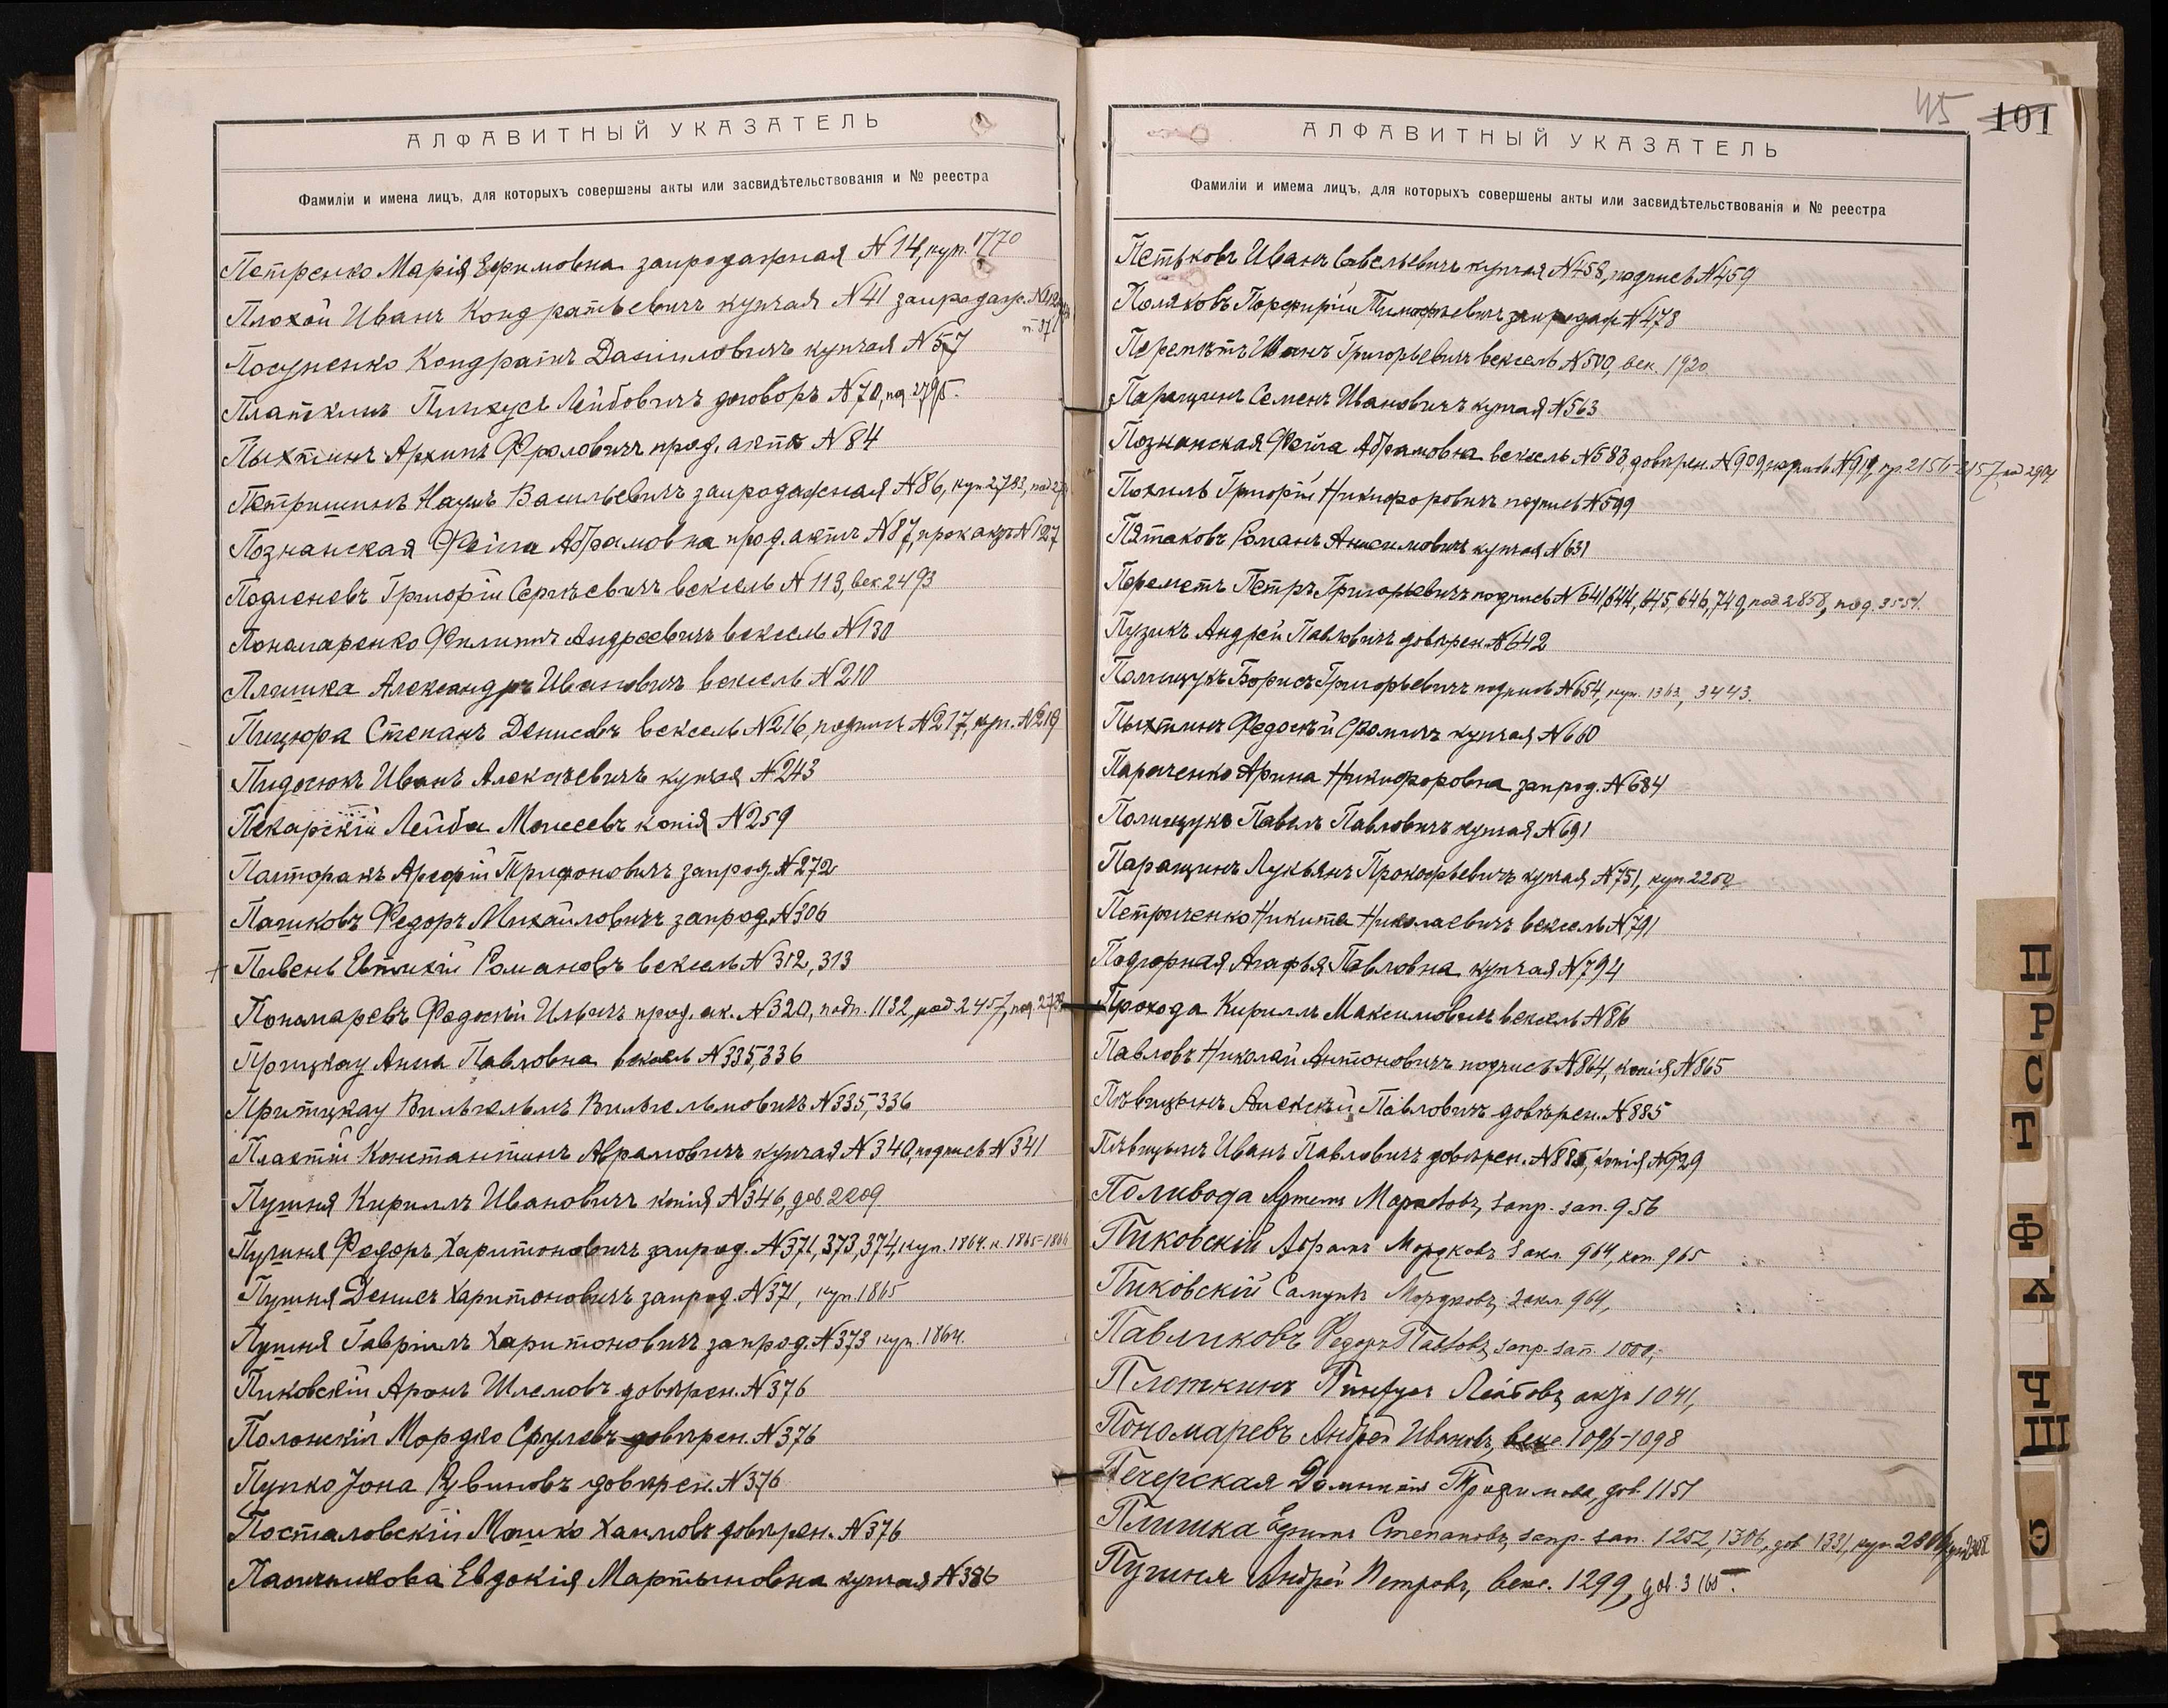 АЛФАВИТНЫЙ УКАЗАТЕЛЬ
Фамиліи и имена лицъ, для которыхъ совершены акты или засвидѣтельствованія и № реестра
Петренко Марія Ефимовна запродажная №14, куп. 1770
Плохой Иванъ Кондратьевичъ купчая №41 запродаж.
Посуненко Кондратъ Даниловичъ купчая №57
Платкинъ Пинхусъ Лейбовичъ договоръ №70, под. 2795.
Пыхтинъ Архипъ Фроловичъ прод. актъ №84
Петришинъ Наумъ Васильевичъ запродажная №86, куп. 2783,
Познанская Фейга Абрамовна прод. актъ №87, прод. актъ №127
Григорій Сергѣевичъ вексель №113, век. 2493
Пономаренко Филиппъ Андреевичъ вексель №130
Плишка Александръ Ивановичъ вексель №210
Пицюра Степанъ Денисовъ вексель №216, подпись №217, куп. №219
Иванъ Алексѣевичъ купчая №243
Пекарскій Лейба Моисеевъ копія №259
Трифоновичъ запрод. №272
Пашковъ Федоръ Михайловичъ запрод. №306
+ Пивень Евтихій Романовъ вексель №312, 313
Пономаревъ Федосѣй Ильичъ прод. ак. №320, подп. 1132, под 2457, под.
Притцкау Анна Павловна вексель №335, 336
Притцкау Вильгельмъ Вильгельмовичъ №335, 336
Константинъ Аврамовичъ купчая №340, подпись №341
Пушня Кириллъ Ивановичъ копія №346, дов. 2209
Пушня Федоръ Харитоновичъ запрод. №371, 373, 374, куп. 1864. к. 1865-
Пушня Денисъ Харитоновичъ запрод. №371, куп. 1865
Пушня Гавріилъ Харитоновичъ запрод. №373 куп. 1864.
Пиковскій Аронъ Шлемовъ довѣрен. №376
Полонскій Мордко Срулевъ довѣрен. №376
Пупко Іона довѣрен. №376
Посталовскій Мошко Хаимовъ довѣрен. №376
Евдокія Мартыновна купчая №386
45 101
АЛФАВИТНЫЙ УКАЗАТЕЛЬ
Фамиліи и имема лицъ, для которыхъ совершены акты или засвидѣтельствованія и № реестра
Петьковъ Иванъ Савельевичъ купчая №458, подпись №459
Поляковъ Порфирій Тимофѣевичъ запродаж №478
Григорьевичъ вексель №500, век. 1920.
Паращинъ Семенъ Ивановичъ купчая №563
Познанская Фейга Абрамовна вексель №583, довѣрен. №909, подпись №919, пр. 2156-2157, под 2904
Похиль Григорій Никифоровичъ подпись №599
Пятаковъ Романъ Анисимовичъ купчая №631
Переметъ Петръ Григорьевичъ подпись №641, 644, 645, 646, 749, под. 2858, под. 3551.
Пузикъ Андрей Павловичъ довѣрен. №642
Полищукъ Борисъ Григорьевичъ подпись №654, куп. 1363, 3443.
Пыхтинъ Федосѣй Фомичъ купчая №660
Арина Никифоровна запрод. №684
Полищукъ Павелъ Павловичъ купчая №691
Паращинъ Лукьянъ Прокофьевичъ купчая №751, куп. 2260
Петриченко Никита Николаевичъ вексель №791
Подгорная Агафья Павловна купчая №794
Прохода Кириллъ Максимовичъ вексель №816
Павловъ Николай Антоновичъ подпись №864, копія №865
Пѣвицынъ Алексѣй Павловичъ довѣрен. №885
Пѣвицынъ Иванъ Павловичъ довѣрен. №885, копія №929
Поливода Артемъ запр. зап. 956
Пиковскій Абрамъ Мордковъ закл. 964, коп. 965
Пиковскій Самуилъ Мордковъ, закл. 964,
Павликовъ Федоръ Павловъ, запр. зап. 1000,
Плоткинъ Пинхусъ Лейбовъ, актъ 1041,
Пономаревъ Андрей Ивановъ, векс 1096-1098
Печерская Трофимова, дов. 1151
Плишка Ефимъ Степановъ, запр. зап. 1252, 1306, дов. 1331, куп.
Пушня Андрей Петровъ, векс. 1299, дов. 3165.
Н
Р
С
Т
Ф
Х
Ч
Щ
Ѳ